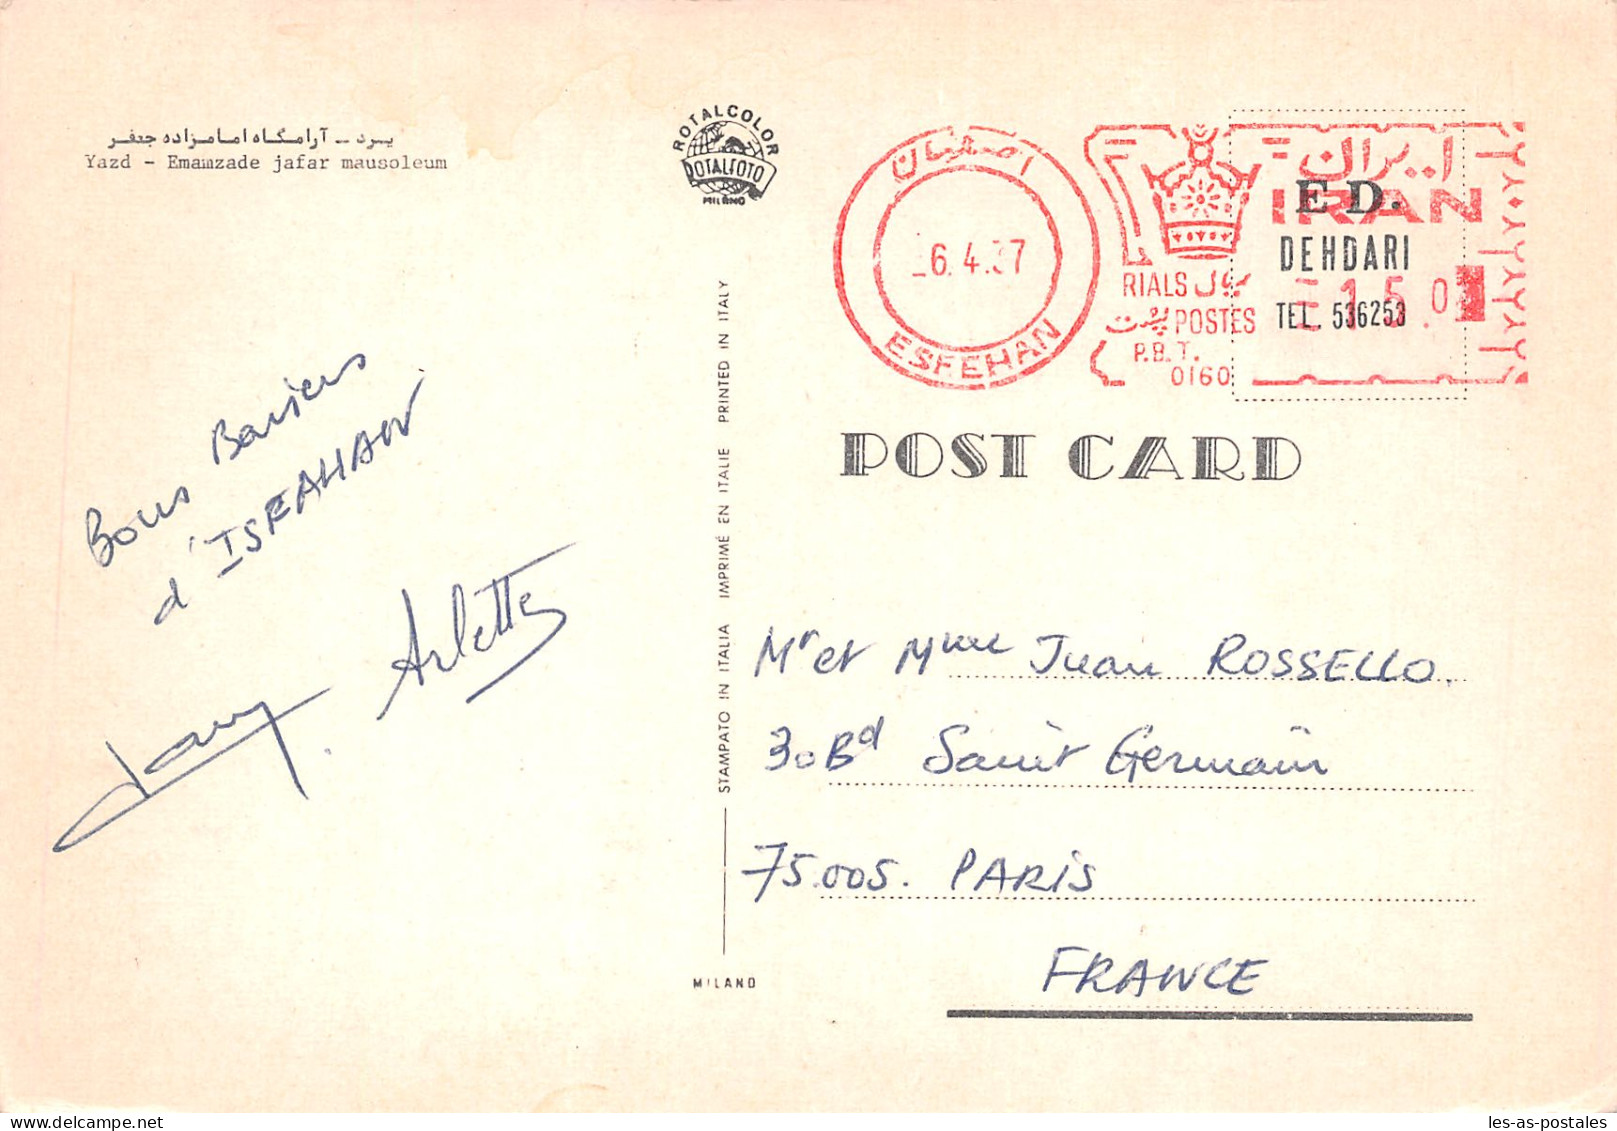 یزد - آرامگاه امامزاده جعفر
Yazd - Emamzade jafar mausoleum
ROTALCOLOR
ROTALFOTO
MILANO
اصفهان
6.4.37
ESFEHAN
ایران
IRAN
RIALS ریال
پست POSTES
P.B.T.
0160
15.0
ED.
DEHDARI
TEL. 536253
POST CARD
Bons Baisers
d'ISFAHAN
Arlette
STAMPATO IN ITALIA IMPRIMÉ EN ITALIE PRINTED IN ITALY
MILANO
Mr et Mme Juan ROSSELLO.
30 Bd Saint Germain
75.005. PARIS
FRANCE
les-as-postales
Delcampe.net